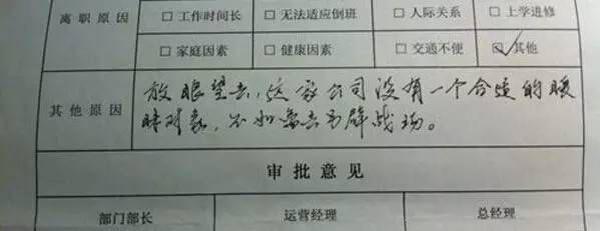 离职原因
□ 工作时间长 □ 无法适应倒班 □ 人际关系 □ 上学进修
□ 家庭因素 □ 健康因素 □ 交通不便 ☑ 其他
其他原因
放眼望去,这家公司没有一个合适的暧
昧对象,不如离去另辟战场。
审批意见
部门部长 运营经理 总经理